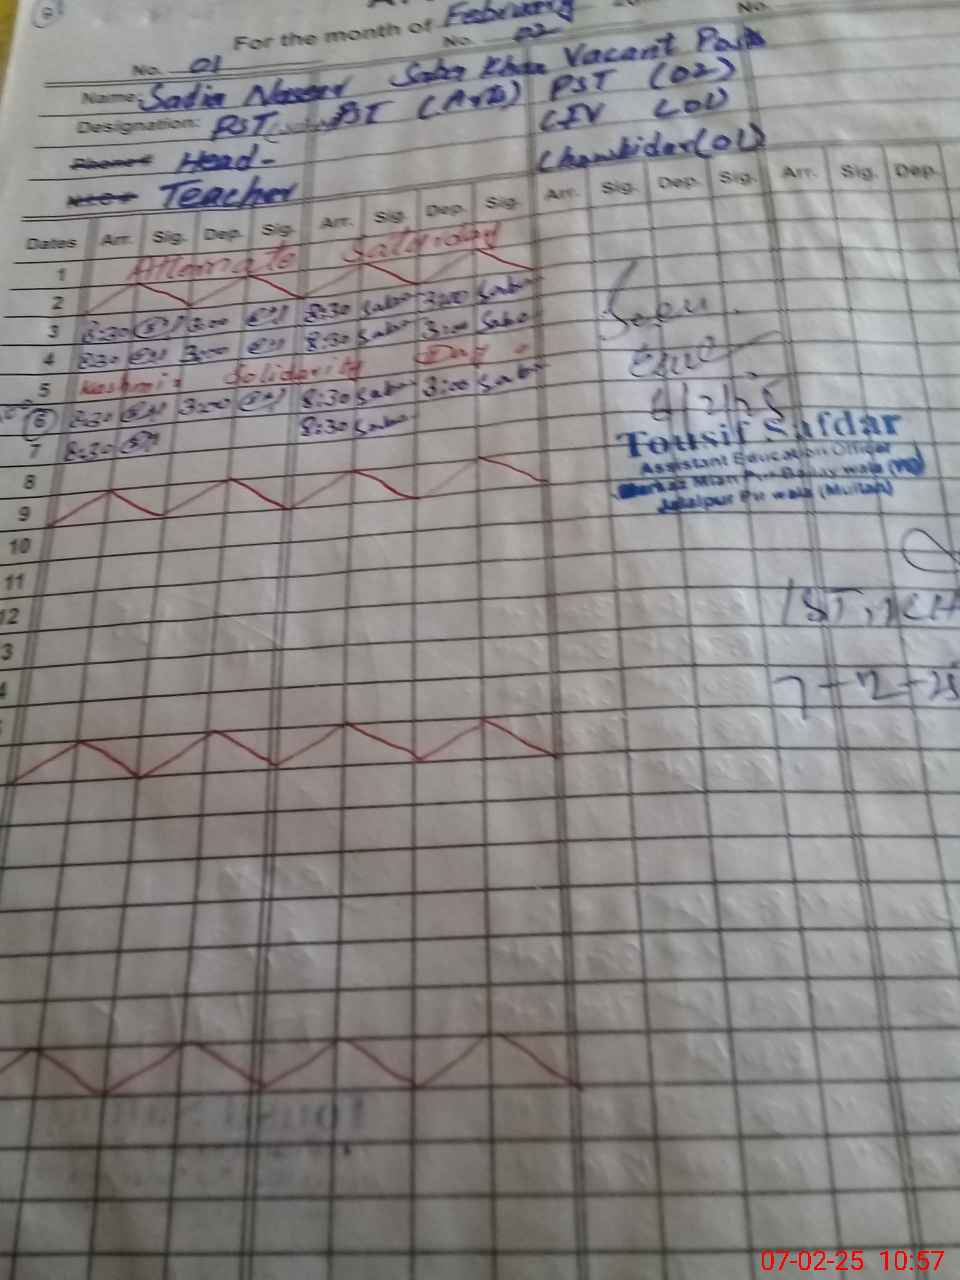 For the month of February
No. 01 No. 02 No.
Name: Sadia Vacant Post
Designation: PST PST PST (02)
Phone# Head- CIV (01)
N.I.C# Teacher Chowkidar (01)
Dates Arr. Sig. Dep. Sig. Arr. Sig. Dep. Sig. Arr. Sig. Dep. Sig. Arr. Sig. Dep.
1 Alternate Saturday
2
3 8:30 3:00 8:30 Saba 3:00 Saba
4 8:30 3:00 8:30 Saba 3:00 Saba
5 Kashmir Solidarity Day
6 8:30 3:00 8:30 Saba 3:00 Saba
7 8:30 8:30 Saba
8
9
10
11
12
3
4
Seen
6/2/25
Tousif Safdar
Assistant Education Officer
Markaz Mian Pur
Jalalpur Pir wala (Multan)
7-2-25
07-02-25 10:57